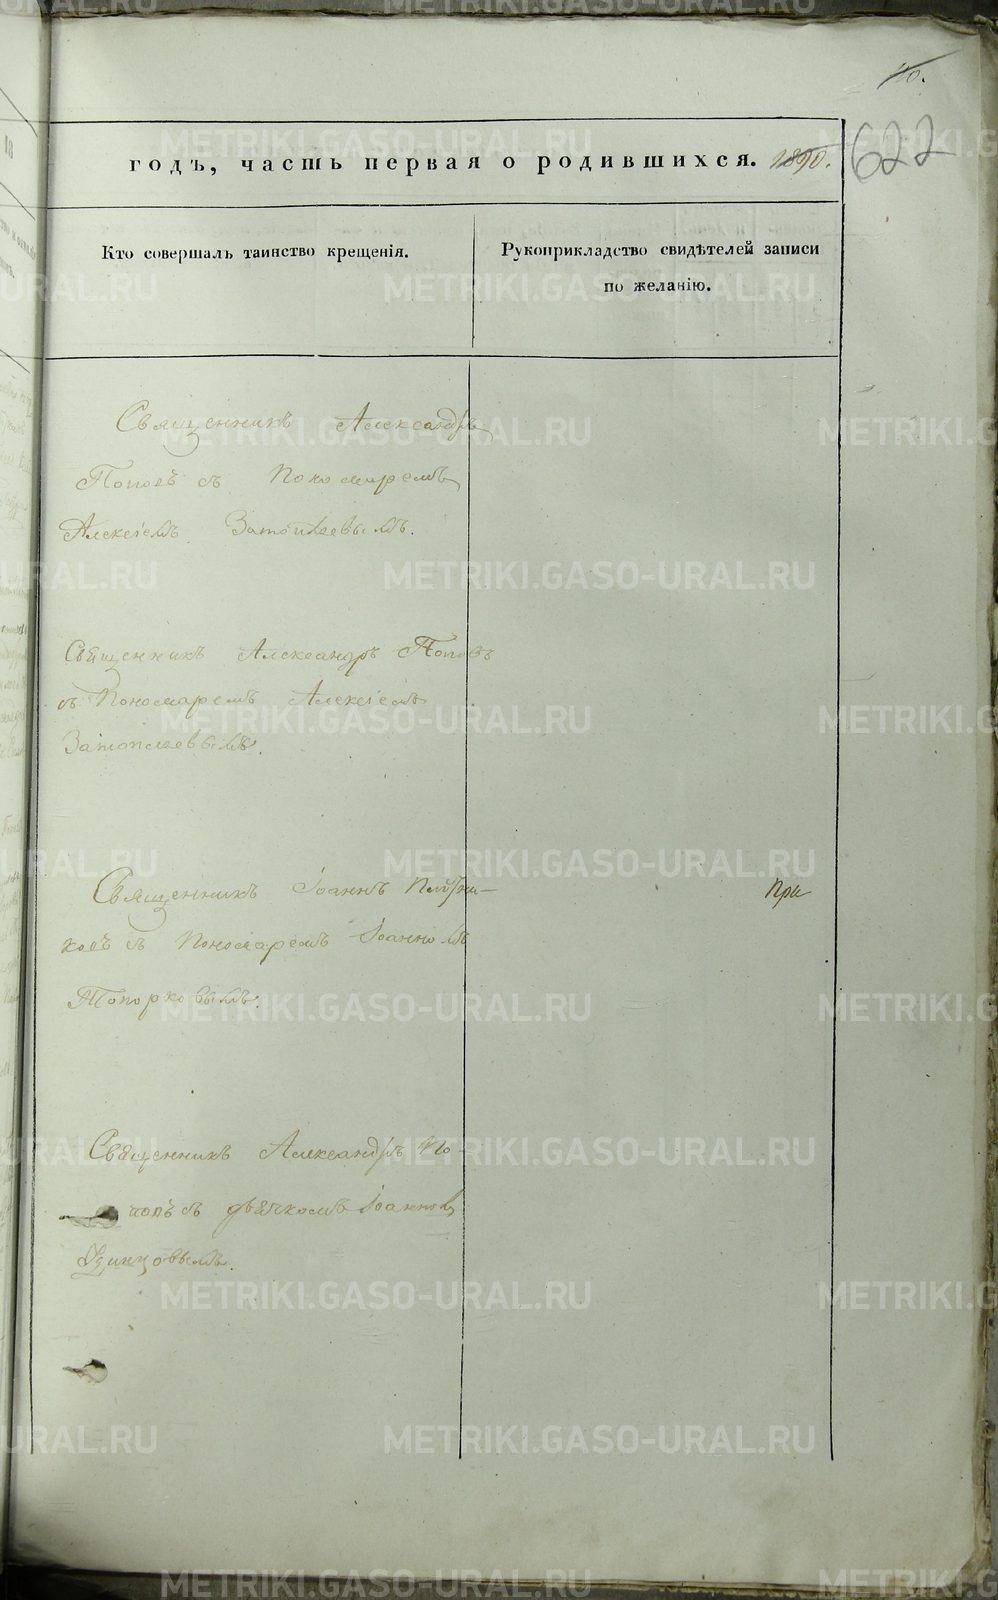 70.
622
годъ, часть первая о родившихся. 1890.
Кто совершалъ таинство крещенія.
Рукоприкладство свидѣтелей записи
по желанію.
Священникъ Александръ
Поповъ съ Пономаремъ
Алексіемъ Затопляевымъ.
Священникъ Александръ Поповъ
съ Пономаремъ Алексіемъ
Затопляевымъ.
Священникъ Іоаннъ
ковъ съ Пономаремъ Іоанномъ
Топорковымъ.
При
Священникъ Александръ По-
повъ съ дьячкомъ Іоанномъ
Одинцовымъ.
METRIKI.GASO-URAL.RU